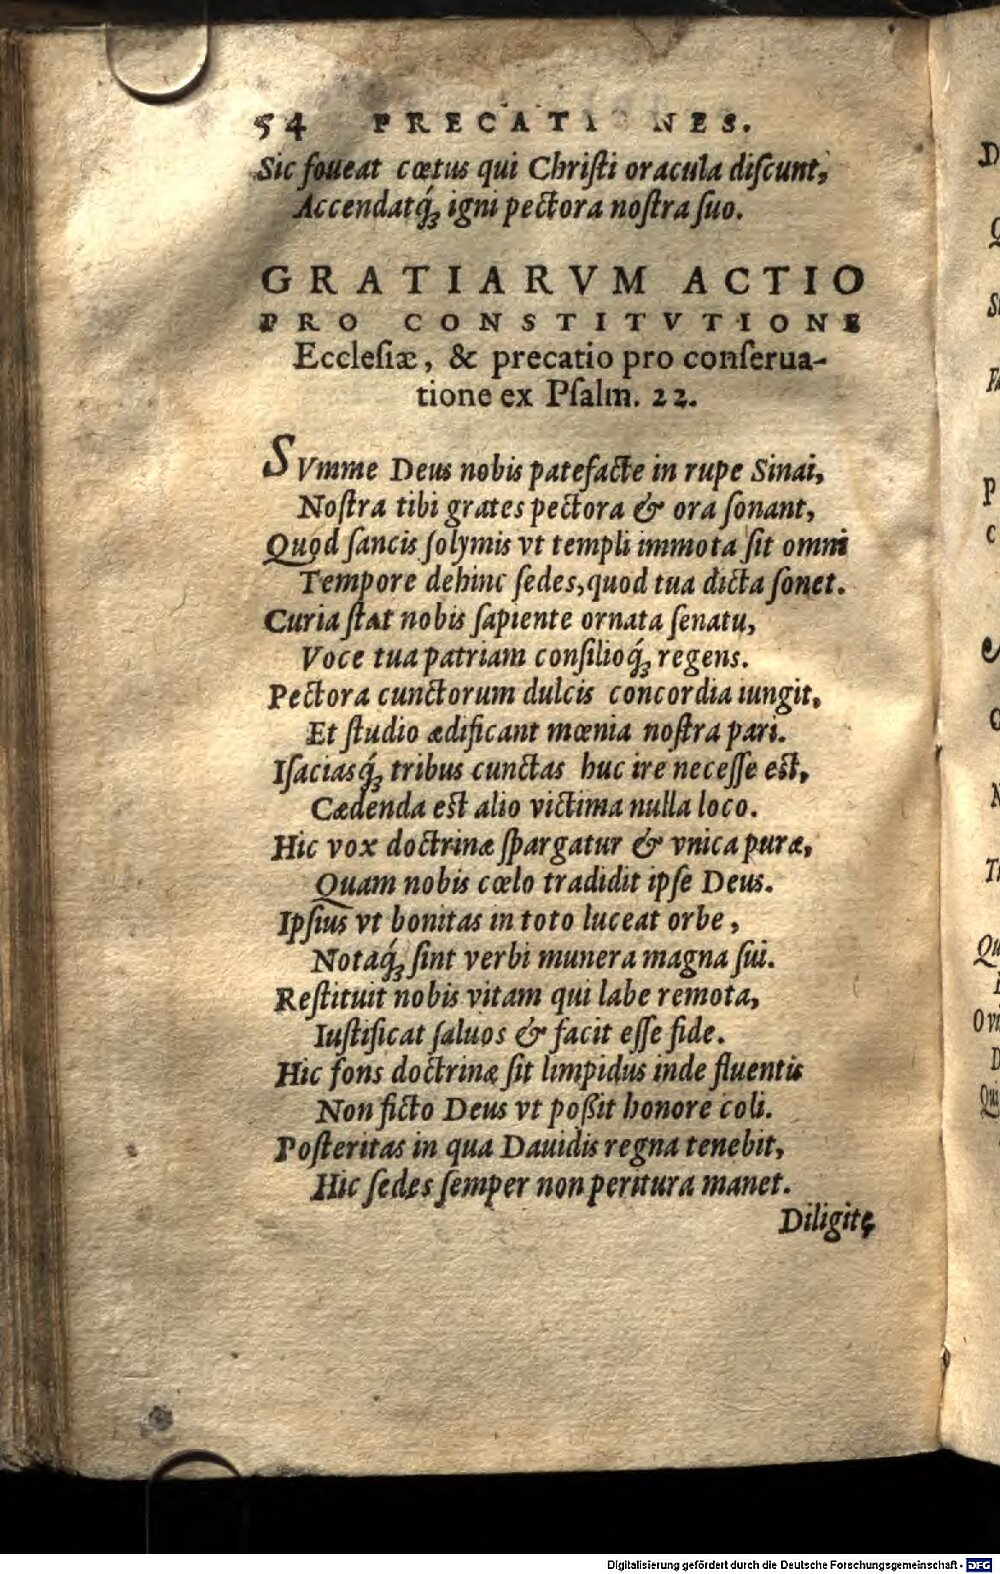 54 PRECATIONES.
Sic foueat cœtus qui Christi oracula discunt,
Accendatq́ꝫ igni pectora nostra suo.
GRATIARVM ACTIO
PRO CONSTITVTIONE
Ecclesiæ, & precatio pro conserua-
tione ex Psalm. 22.
SVmme Deus nobis patefacte in rupe Sinai,
Nostra tibi grates pectora & ora sonant,
Quod sancis solymis vt templi immota sit omni
Tempore dehinc sedes, quod tua dicta sonet.
Curia stat nobis sapiente ornata senatu,
Voce tua patriam consilioq́ꝫ regens.
Pectora cunctorum dulcis concordia iungit,
Et studio ædificant mœnia nostra pari.
Isaciasq́ꝫ tribus cunctas huc ire necesse est,
Cædenda est alio victima nulla loco.
Hic vox doctrinæ spargatur & vnica puræ,
Quam nobis cœlo tradidit ipse Deus.
Ipsius vt bonitas in toto luceat orbe,
Notaq́ꝫ sint verbi munera magna sui.
Restituit nobis vitam qui labe remota,
Iustificat saluos & facit esse fide.
Hic fons doctrinæ sit limpidus inde fluentis
Non ficto Deus vt poßit honore coli.
Posteritas in qua Dauidis regna tenebit,
Hic sedes semper non peritura manet.
Diligite
Digitalisierung gefördert durch die Deutsche Forschungsgemeinschaft - DFG